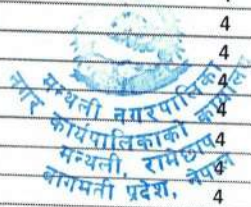 4
4
4
4
4
4
4
4
मन्थली नगरपालिका
नगर कार्यपालिकाको कार्यालय
मन्थली, रामेछाप
बागमती प्रदेश, नेपाल